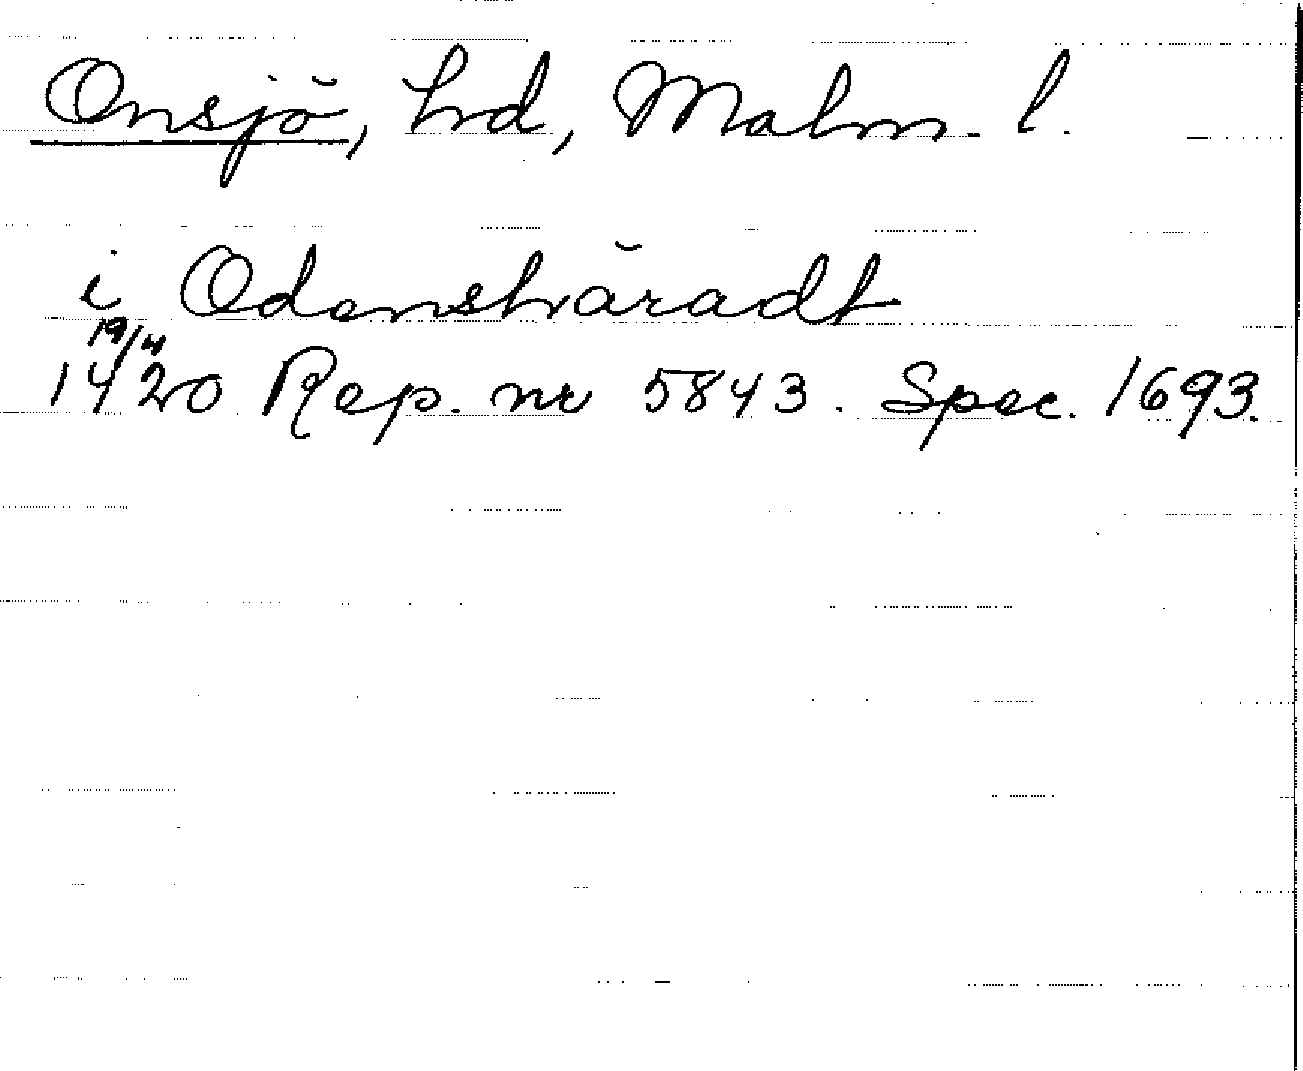 Onsjö, hd, Malm. l.
i Odenshäradt
19/4
1420 Rep. nr 5843. Spec. 1693.